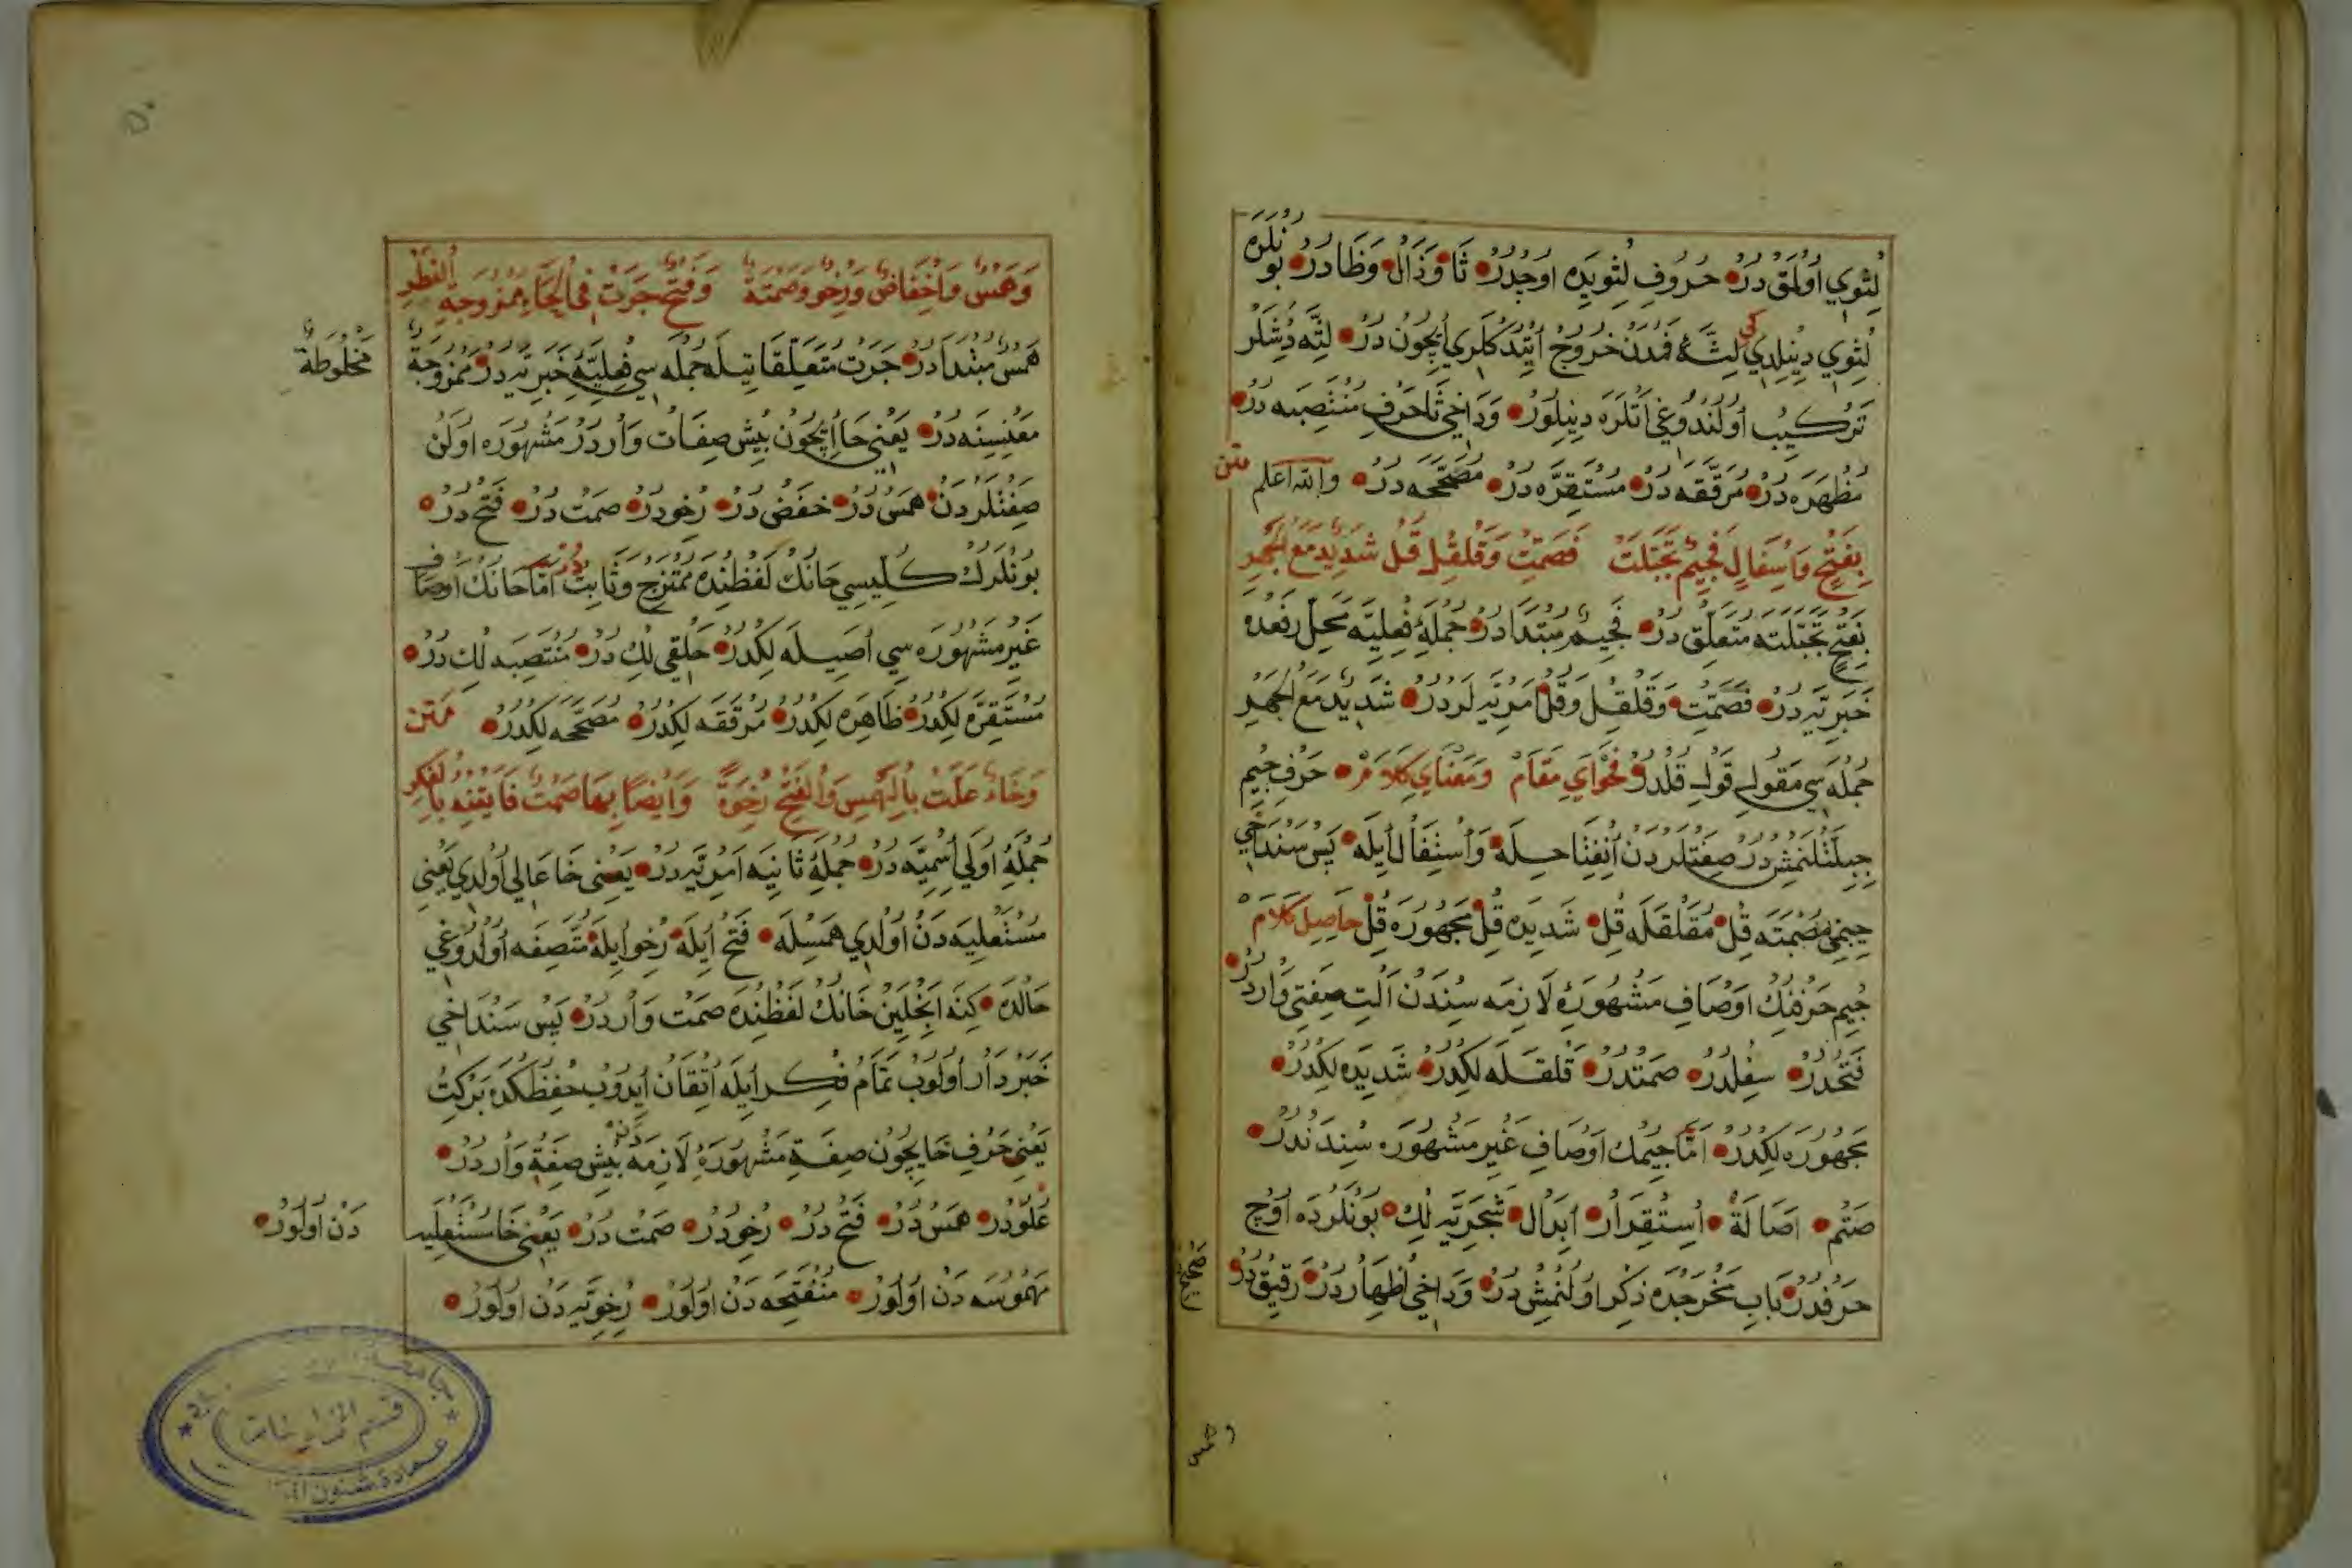 لِثَوِي اُولْمَقْ دَرْ حُرُوفِ لِثَوِيَه اوُچْدُرْ ثَا وَذَالْ وَظَا دَرْ بُونْلَرَه
لِثَوِي دِينِلْدِي كِي لِثَّهُ فَمْدَنْ خُرُوجْ اِيتْدِكْلَرِي اِيچُونْ دَرْ لِثَّه دِيشْلَرْ
تَرْكِيبْ اُولَنْدُوغِي اَتْلَرَه دِينِلُورْ وَدَاخِي ثَا حَرْفِ مُنْتَصِبَه دَرْ
مُظْهَرَه دَرْ مُرَقَّقَه دَرْ مُسْتَقِرَّه دَرْ مُصَحَّحَه دَرْ وَاللّٰه اَعْلَم متن
بِفَتْحٍ وَاسْفَالٍ فَجِيمٌ تَجَبَّلَتْ فَصَمِّتْ وَقَلْقِلْ قُلْ شَدِيدٌ مَعَ الْجَهْرِ
بِفَتْحٍ تَجَبَّلَتَه مُتَعَلِّقْ دَرْ فَجِيمٌ مُبْتَدَا دَرْ جُمْلَهٔ فِعْلِيَّه مَحَلِّ رَفْعْدَه
خَبَرِيَّه دَرْ فَصَمِّتْ وَقَلْقِلْ وَقُلْ اَمْرِيَّه لَرْدَرْ شَدِيدٌ مَعَ الْجَهْرِ
جُمْلَه سِي مَقُولِ قَوْلِ قُلْدُرْ فَحْوَايِ مَقَامْ وَمَعْنَايِ كَلَامْ حَرْفِ جِيمْ
جِبِلَّتْلَنْمِشْدُرْ صِفَتْلَرْدَنْ اِنْفِتَاحِلَه وَاسْتِفَالْ اِيلَه پَسْ سَنْدَاخِي
جِيمِي مُصْمَتَه قِلْ مُقَلْقَلَه قِلْ شَدِيدَه قِلْ مَجْهُورَه قِلْ حَاصِلِ كَلَامْ
جِيمِ حَرْفِنِكْ اَوْصَافِ مَشْهُورَهٔ لَازِمَه سِنْدَنْ اَلْتِي صِفَتِي وَارْدُرْ
فَتْحْدُرْ سِفْلْدُرْ صَمْتْدُرْ قَلْقَلَه لِكْدُرْ شَدِيدَه لِكْدُرْ
مَجْهُورَه لِكْدُرْ اَمَّا جِيمِكْ اَوْصَافِ غَيْرِ مَشْهُورَه سِنْدَنْدُرْ
صَتْمْ اَصَالَةْ اِسْتِقْرَارْ اِبْدَالْ شَجَرِيَّه لِكْ بُونْلَرْدَه اوُچْ
حَرْفْدُرْ بَابِ مَخْرَجْدَه ذِكْر اوُلُنْمِشْ دُرْ وَدَاخِي اِظْهَارْ دُرْ رَقِيقْ دُرْ
وَهَمْسٌ وَاِخْفَاضٌ وَرِخْوٌ وَصَمْتَةٌ وَفَتْحٌ جَرَتْ فِي الْحَاءِ مَمْزُوجَةِ الْفَطْرِ
هَمْسٌ مُبْتَدَا دَرْ جَرَتْ مُتَعَلِّقَاتِيلَه جُمْلَه سِي فِعْلِيَّهٔ خَبَرِيَّه دَرْ مَمْزُوجَةٌ
مَخْلُوطَةٌ
مَعْنِيسِنَه دَرْ يَعْنِي حَا اِيچُونْ بِيشْ صِفَاتْ وَارْدَرْ مَشْهُورَه اوُلَنْ
صِفَتْلَرْدَنْ هَمْسْ دَرْ خَفْضْ دَرْ رِخْودَرْ صَمْتْ دَرْ فَتْحْ دَرْ
بُونْلَرِكْ كُلِّيسِي حَانِكْ لَفْظِنْدَه مُمْتَزِجْ وَثَابِتْ دُرْ اَمَّا حَانِكْ اَوْصَافِ
غَيْرِ مَشْهُورَه سِي اَصِيلَه لِكْدُرْ حَلْقِي لِكْ دَرْ مُنْتَصِبَه لِكْ دَرْ
مُسْتَقِرَّه لِكْدُرْ ظَاهِرَه لِكْدُرْ مُرَقَّقَه لِكْدُرْ مُصَحَّحَه لِكْدُرْ مَتن
وَخَاءٌ عَلَتْ بِالْهَمْسِ وَالْفَتْحِ رِخْوَةً وَاَيْضًا بِهَا صَمْتٌ فَاَتْقِنْهُ بِالْفِكْرِ
جُمْلَهٔ اُولَي اِسْمِيَّه دَرْ جُمْلَهٔ ثَانِيَه اَمْرِيَّه دَرْ يَعْنِي خَا عَالِي اُولْدِي يَعْنِي
مُسْتَعْلِيَه دَنْ اُولْدِي هَمْسِلَه فَتْحْ اِيلَه رِخْو اِيلَه مُتَّصِفَه اُولْدُوغِي
حَالْدَه كِنَه اَنْجِلَيِنْ خَانِكْ لَفْظِنْدَه صَمْتْ وَارْدُرْ پَسْ سَنْدَاخِي
خَبَرْدَارْ اُولُوبْ تَمَامْ فِكْرِ اِيلَه اِتْقَانْ اِيدُوبْ حِفْظِكْدَه بَرْكِتْ
يَعْنِي حَرْفِ خَايِچُونْ صِفَةِ مَشْهُورَهٔ لَازِمَه دَنْ بِيشْ صِفَةْ وَارْدُرْ
عُلُوّدُرْ هَمْسْدُرْ فَتْحْ دُرْ رِخْودُرْ صَمْتْ دُرْ يَعْنِي خَا مُسْتَعْلِيَه
دَنْ اُولُورْ
مَهْمُوسَه دَنْ اوُلُورْ مُنْفَتِحَه دَنْ اوُلُورْ رِخْوِيَّه دَنْ اوُلُورْ
وهمس
قسم المخطوطات